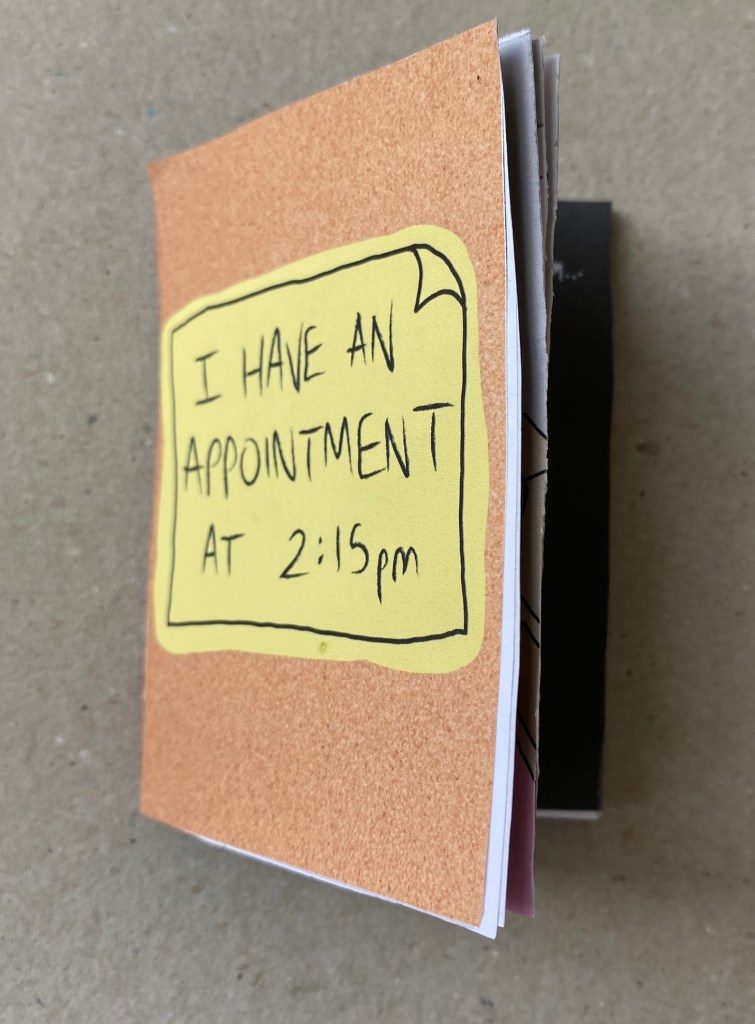 I HAVE AN
APPOINTMENT
AT 2:15pm